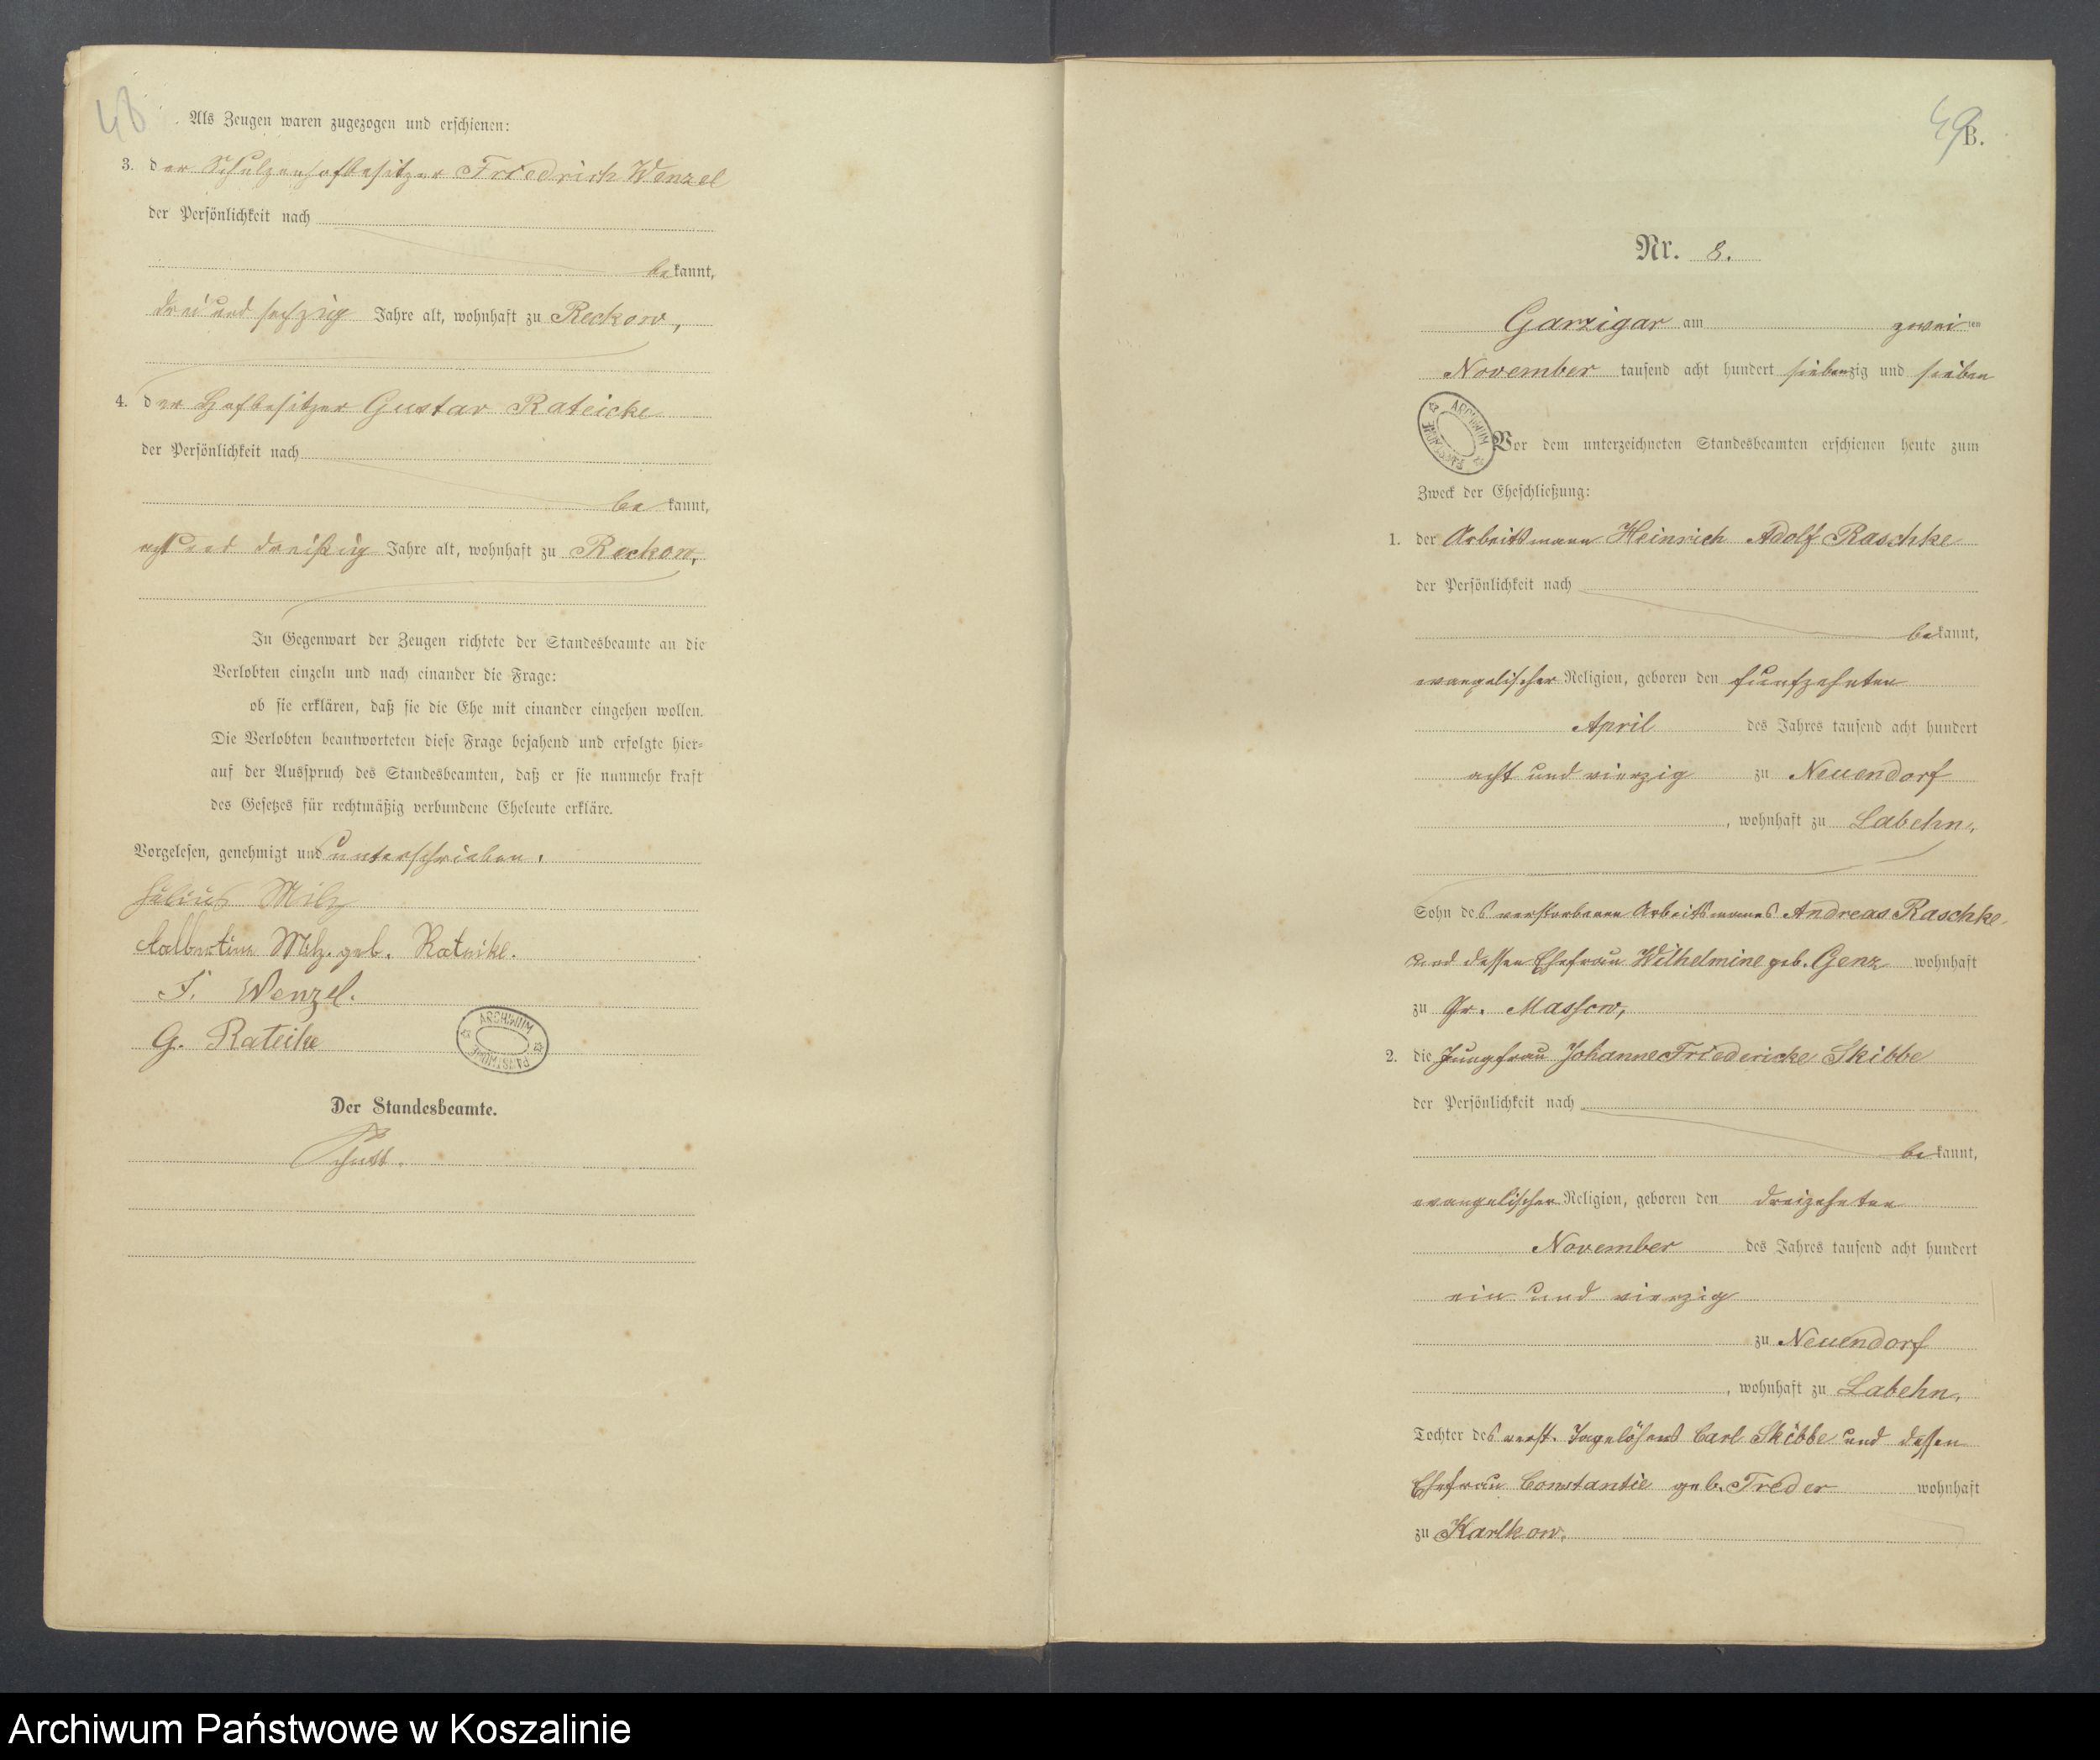 48
Als Zeugen waren zugezogen und erschienen:
3. der Schulzenhofbesitzer Friedrich Wenzel
der Persönlichkeit nach
bekannt,
drei und sechzig Jahre alt, wohnhaft zu Reckow,
4. der Hofbesitzer Gustav Rateicke
der Persönlichkeit nach
bekannt,
acht und dreißig Jahre alt, wohnhaft zu Reckow,
In Gegenwart der Zeugen richtete der Standesbeamte an die
Verlobten einzeln und nach einander die Frage:
ob sie erklären, daß sie die Ehe mit einander eingehen wollen.
Die Verlobten beantworteten diese Frage bejahend und erfolgte hier-
auf der Ausspruch des Standesbeamten, daß er sie nunmehr kraft
des Gesetzes für rechtmäßig verbundene Eheleute erkläre.
Vorgelesen, genehmigt und unterschrieben.
Julius Milz
Milz. geb. Rateike.
F. Wenzel.
G. Rateike
ARCHIWUM PAŃSTWOWE
Der Standesbeamte.
49
B.
Nr. 8.
Garzigar am zweiten
November tausend acht hundert siebenzig und sieben
ARCHIWUM PAŃSTWOWE
Vor dem unterzeichneten Standesbeamten erschienen heute zum
Zweck der Eheschließung:
1. der Arbeitsmann Heinrich Adolf Raschke
der Persönlichkeit nach
bekannt,
evangelischer Religion, geboren den funfzehnten
April des Jahres tausend acht hundert
acht und vierzig zu Neuendorf
, wohnhaft zu Labehn,
Sohn des verstorbenen Arbeitsmannes Andreas Raschke
und dessen Ehefrau Wilhelmine geb. Genz wohnhaft
zu Gr. Massow,
2. die Jungfrau Johanne Friedericke Skibbe
der Persönlichkeit nach
bekannt,
evangelischer Religion, geboren den dreizehnten
November des Jahres tausend acht hundert
ein und vierzig
zu Neuendorf
, wohnhaft zu Labehn,
Tochter des verst. Tagelöhners Carl Skibbe und dessen
Ehefrau Constantie geb. Treder wohnhaft
zu Karlkow,
Archiwum Państwowe w Koszalinie